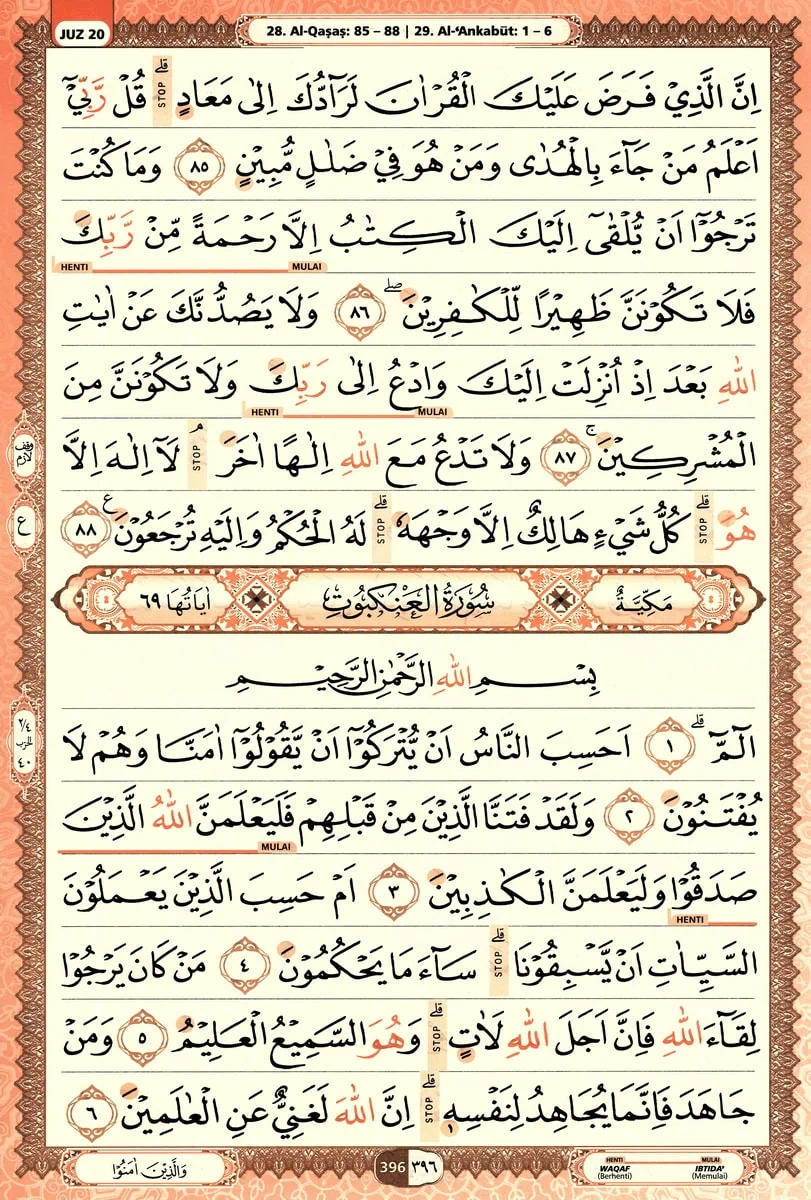 JUZ 20
28. Al-Qaṣaṣ: 85 – 88 | 29. Al-‘Ankabūt: 1 – 6
اِنَّ الَّذِيْ فَرَضَ عَلَيْكَ الْقُرْاٰنَ لَرَاۤدُّكَ اِلٰى مَعَادٍ ۗ STOP قُلْ رَّبِّيْٓ
اَعْلَمُ مَنْ جَاۤءَ بِالْهُدٰى وَمَنْ هُوَ فِيْ ضَلٰلٍ مُّبِيْنٍ ٨٥ وَمَا كُنْتَ
تَرْجُوْٓا اَنْ يُّلْقٰٓى اِلَيْكَ الْكِتٰبُ اِلَّا رَحْمَةً مِّنْ رَّبِّكَ
MULAI HENTI
فَلَا تَكُوْنَنَّ ظَهِيْرًا لِّلْكٰفِرِيْنَ ۖ ٨٦ وَلَا يَصُدُّنَّكَ عَنْ اٰيٰتِ
اللّٰهِ بَعْدَ اِذْ اُنْزِلَتْ اِلَيْكَ وَادْعُ اِلٰى رَبِّكَ وَلَا تَكُوْنَنَّ مِنَ
MULAI HENTI
الْمُشْرِكِيْنَ ۚ ٨٧ وَلَا تَدْعُ مَعَ اللّٰهِ اِلٰهًا اٰخَرَ ۘ STOP لَآ اِلٰهَ اِلَّا
وقف لازم
هُوَ ۗ STOP كُلُّ شَيْءٍ هَالِكٌ اِلَّا وَجْهَهٗ ۗ STOP لَهُ الْحُكْمُ وَاِلَيْهِ تُرْجَعُوْنَ ࣖ ٨٨
ع
مَكِّيَّةٌ
سُوْرَةُ الْعَنْكَبُوْتِ
اٰيَاتُهَا ٦٩
بِسْمِ اللّٰهِ الرَّحْمٰنِ الرَّحِيْمِ
الۤمّۤ ۗ ١ اَحَسِبَ النَّاسُ اَنْ يُّتْرَكُوْٓا اَنْ يَّقُوْلُوْٓا اٰمَنَّا وَهُمْ لَا
٢/٤ الحزب ٤٠
يُفْتَنُوْنَ ٢ وَلَقَدْ فَتَنَّا الَّذِيْنَ مِنْ قَبْلِهِمْ فَلَيَعْلَمَنَّ اللّٰهُ الَّذِيْنَ
MULAI
صَدَقُوْا وَلَيَعْلَمَنَّ الْكٰذِبِيْنَ ٣ اَمْ حَسِبَ الَّذِيْنَ يَعْمَلُوْنَ
HENTI
السَّيِّاٰتِ اَنْ يَّسْبِقُوْنَا ۗ STOP سَاۤءَ مَا يَحْكُمُوْنَ ٤ مَنْ كَانَ يَرْجُوْا
لِقَاۤءَ اللّٰهِ فَاِنَّ اَجَلَ اللّٰهِ لَاٰتٍ ۗ STOP وَهُوَ السَّمِيْعُ الْعَلِيْمُ ٥ وَمَنْ
جَاهَدَ فَاِنَّمَا يُجَاهِدُ لِنَفْسِهٖ ۗ STOP اِنَّ اللّٰهَ لَغَنِيٌّ عَنِ الْعٰلَمِيْنَ ٦
وَالَّذِيْنَ اٰمَنُوْا
396 ٣٩٦
HENTI WAQAF (Berhenti)
MULAI IBTIDA' (Memulai)